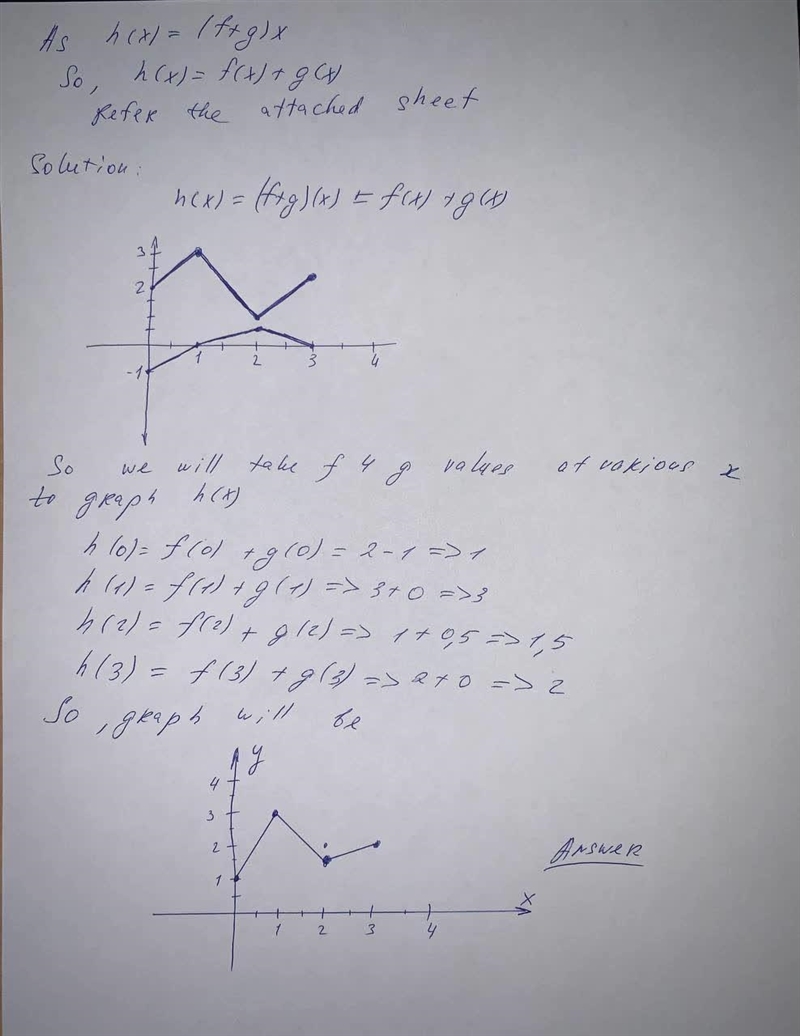 As h(x) = (f+g)x
So, h(x) = f(x) + g(x)
Refer the attached sheet
Solution:
h(x) = (f+g)(x) = f(x) + g(x)
3
2
-1
1 2 3 4
So we will take f 4 g values at various x
to graph h(x)
h(0) = f(0) + g(0) = 2 - 1 => 1
h(1) = f(1) + g(1) => 3+0 => 3
h(2) = f(2) + g(2) => 1+0,5 => 1,5
h(3) = f(3) + g(3) => 2+0 => 2
So, graph will be
y
4
3
2
1
Answer
x
1 2 3 4